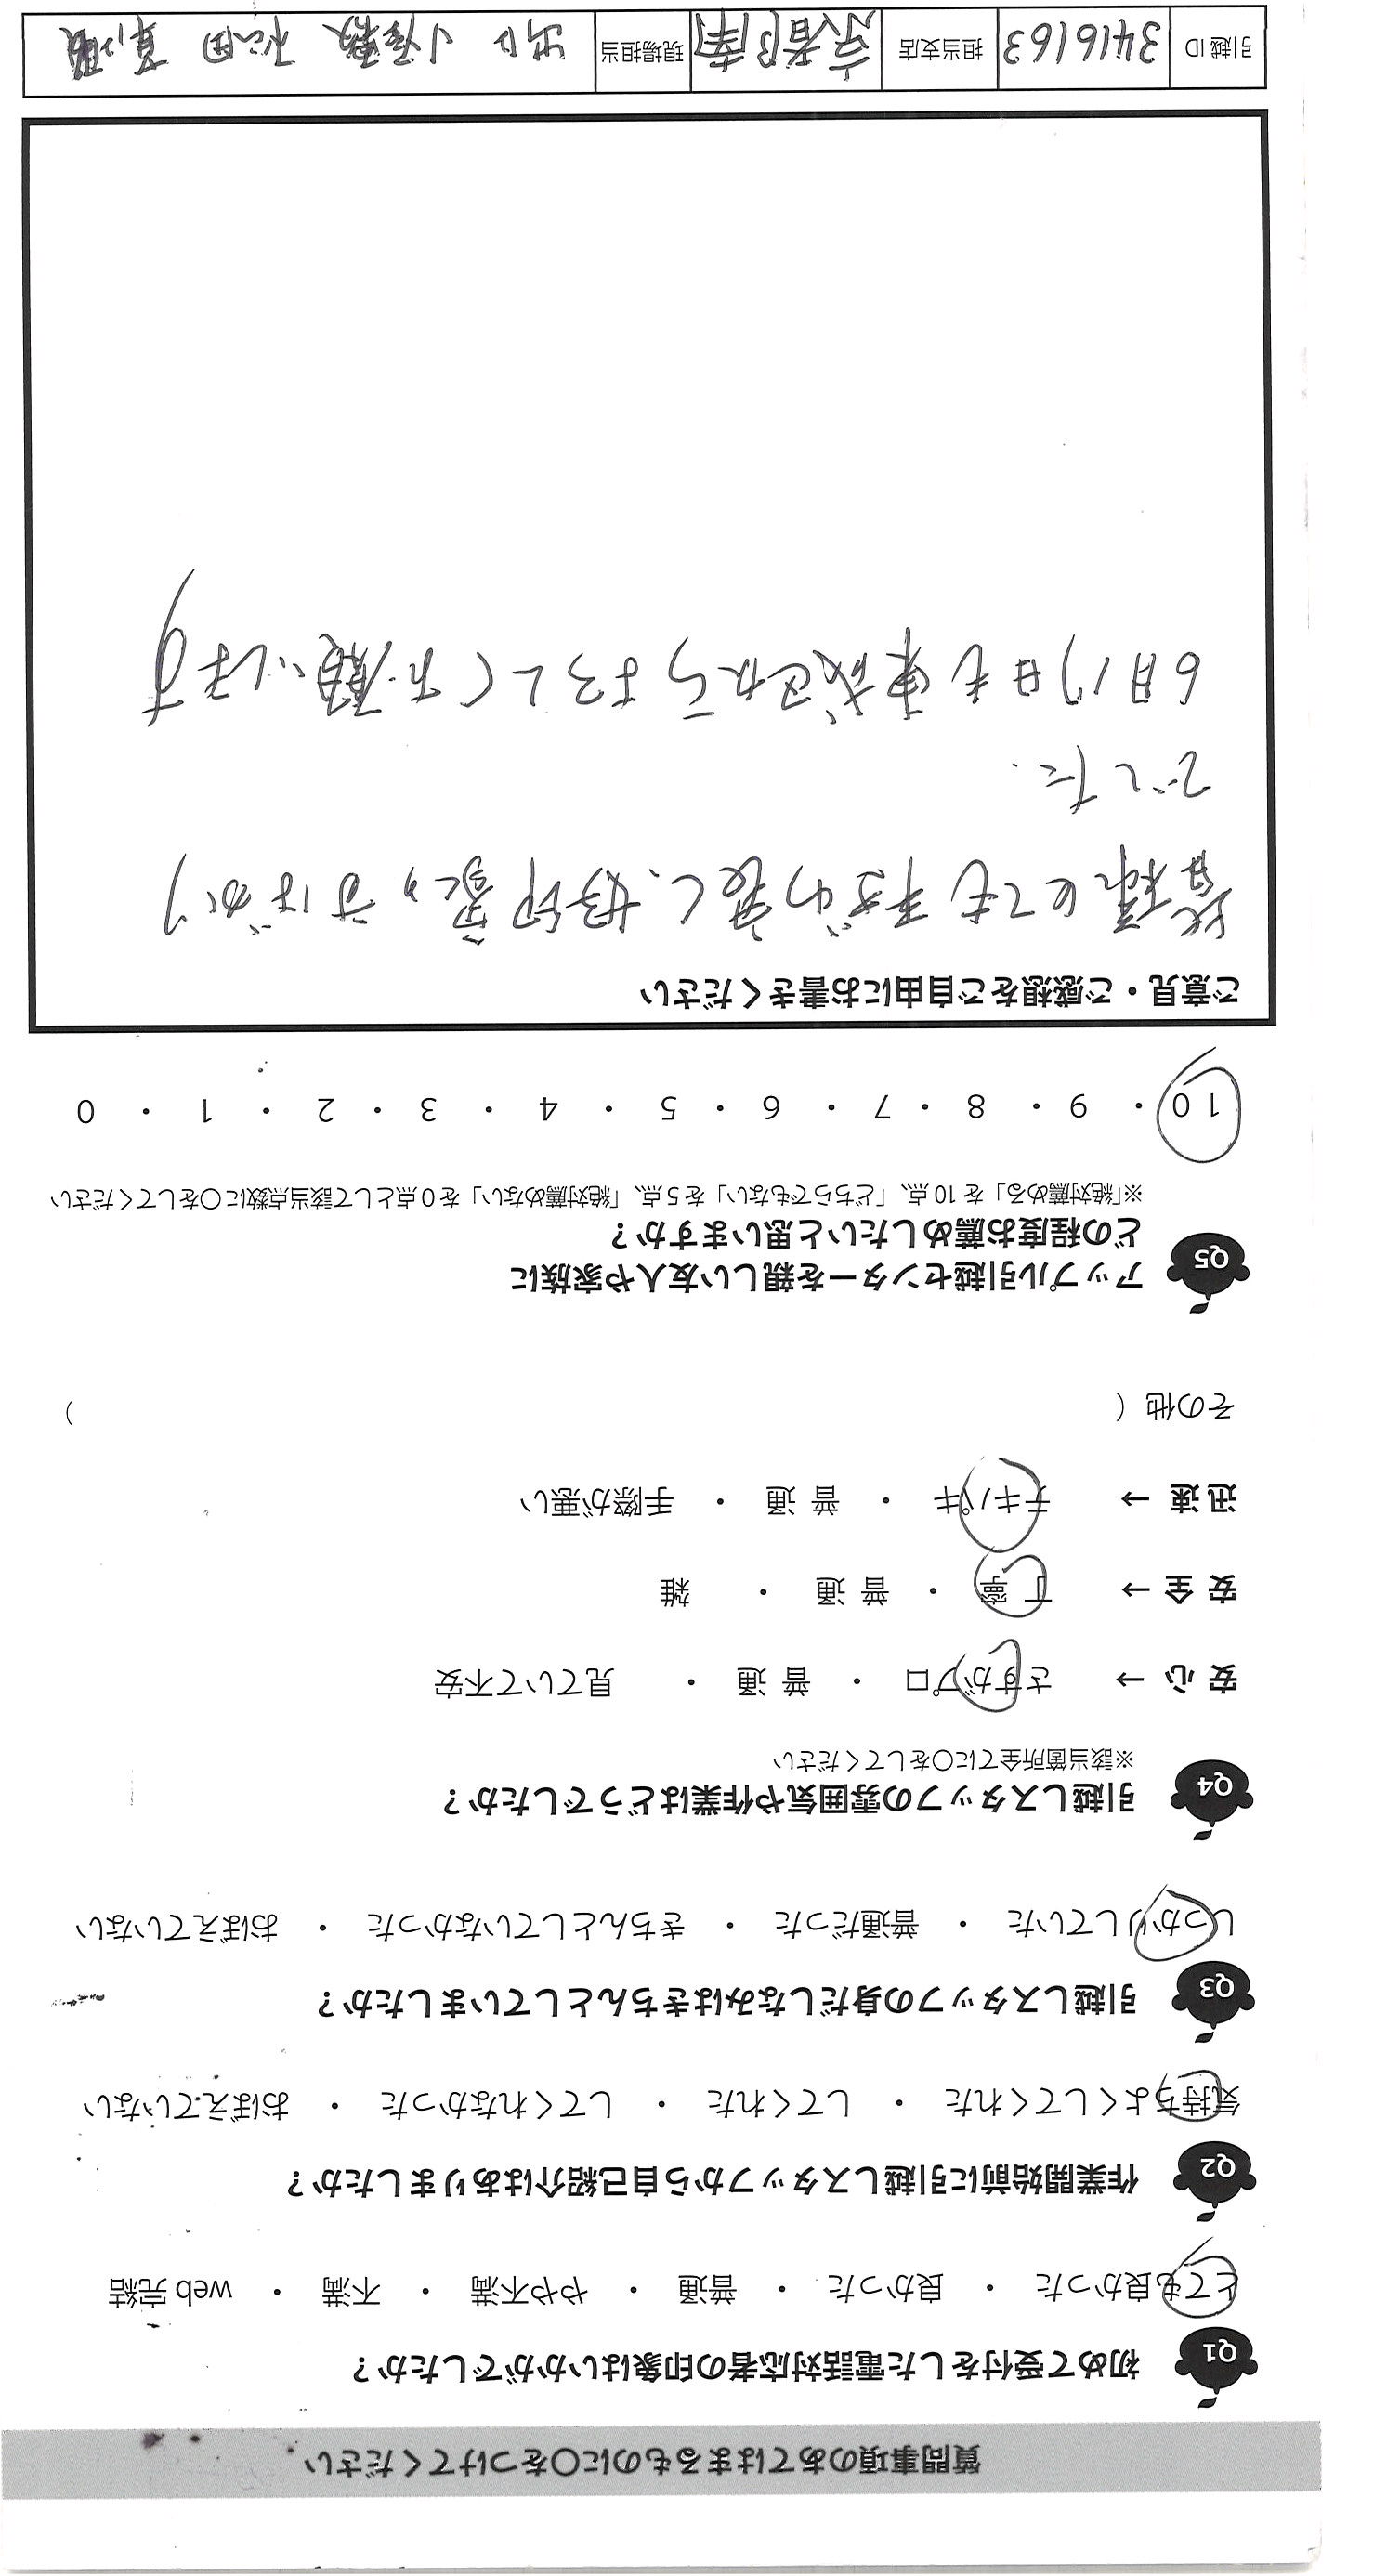 質問事項のあてはまるものに○をつけてください
Q1 初めて受付をした電話対応者の印象はいかがでしたか？
とても良かった ・ 良かった ・ 普通 ・ やや不満 ・ 不満 ・ web 完結
Q2 作業開始前に引越しスタッフから自己紹介はありましたか？
気持ちよくしてくれた ・ してくれた ・ してくれなかった ・ おぼえていない
Q3 引越しスタッフの身だしなみはきちんとしていましたか？
しっかりしていた ・ 普通だった ・ きちんとしていなかった ・ おぼえていない
Q4 引越しスタッフの雰囲気や作業はどうでしたか？
※該当箇所全てに○をしてください
安 心 → さすがプロ ・ 普 通 ・ 見ていて不安
安 全 → 丁 寧 ・ 普 通 ・ 雑
迅 速 → テキパキ ・ 普 通 ・ 手際が悪い
その他 (　)
Q5 アップル引越センターを親しい友人や家族に
どの程度お薦めしたいと思いますか？
※「絶対薦める」を 10 点、「どちらでもない」を 5 点、「絶対薦めない」を 0 点として該当点数に○をしてください
10 ・ 9 ・ 8 ・ 7 ・ 6 ・ 5 ・ 4 ・ 3 ・ 2 ・ 1 ・ 0
ご意見・ご感想をご自由にお書きください
皆様とても手ぎわ良く、好印象の方ばかり
でした.
6月17日も東成区からよろしくお願いします
引越 ID 3416163 担当支店 京都南 現場担当 出口 小 松田